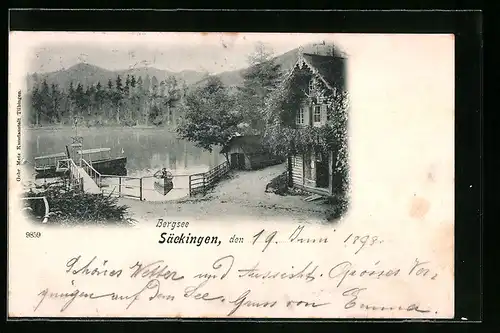 Gebr Metz Kunstanstalt Tübingen.
Bergsee
9859 Säckingen, den 19. Juni 1898.
Schönes Wetter und Aussicht, Grösses Ver-
gnügen auf dem See, Gruss von Emma.